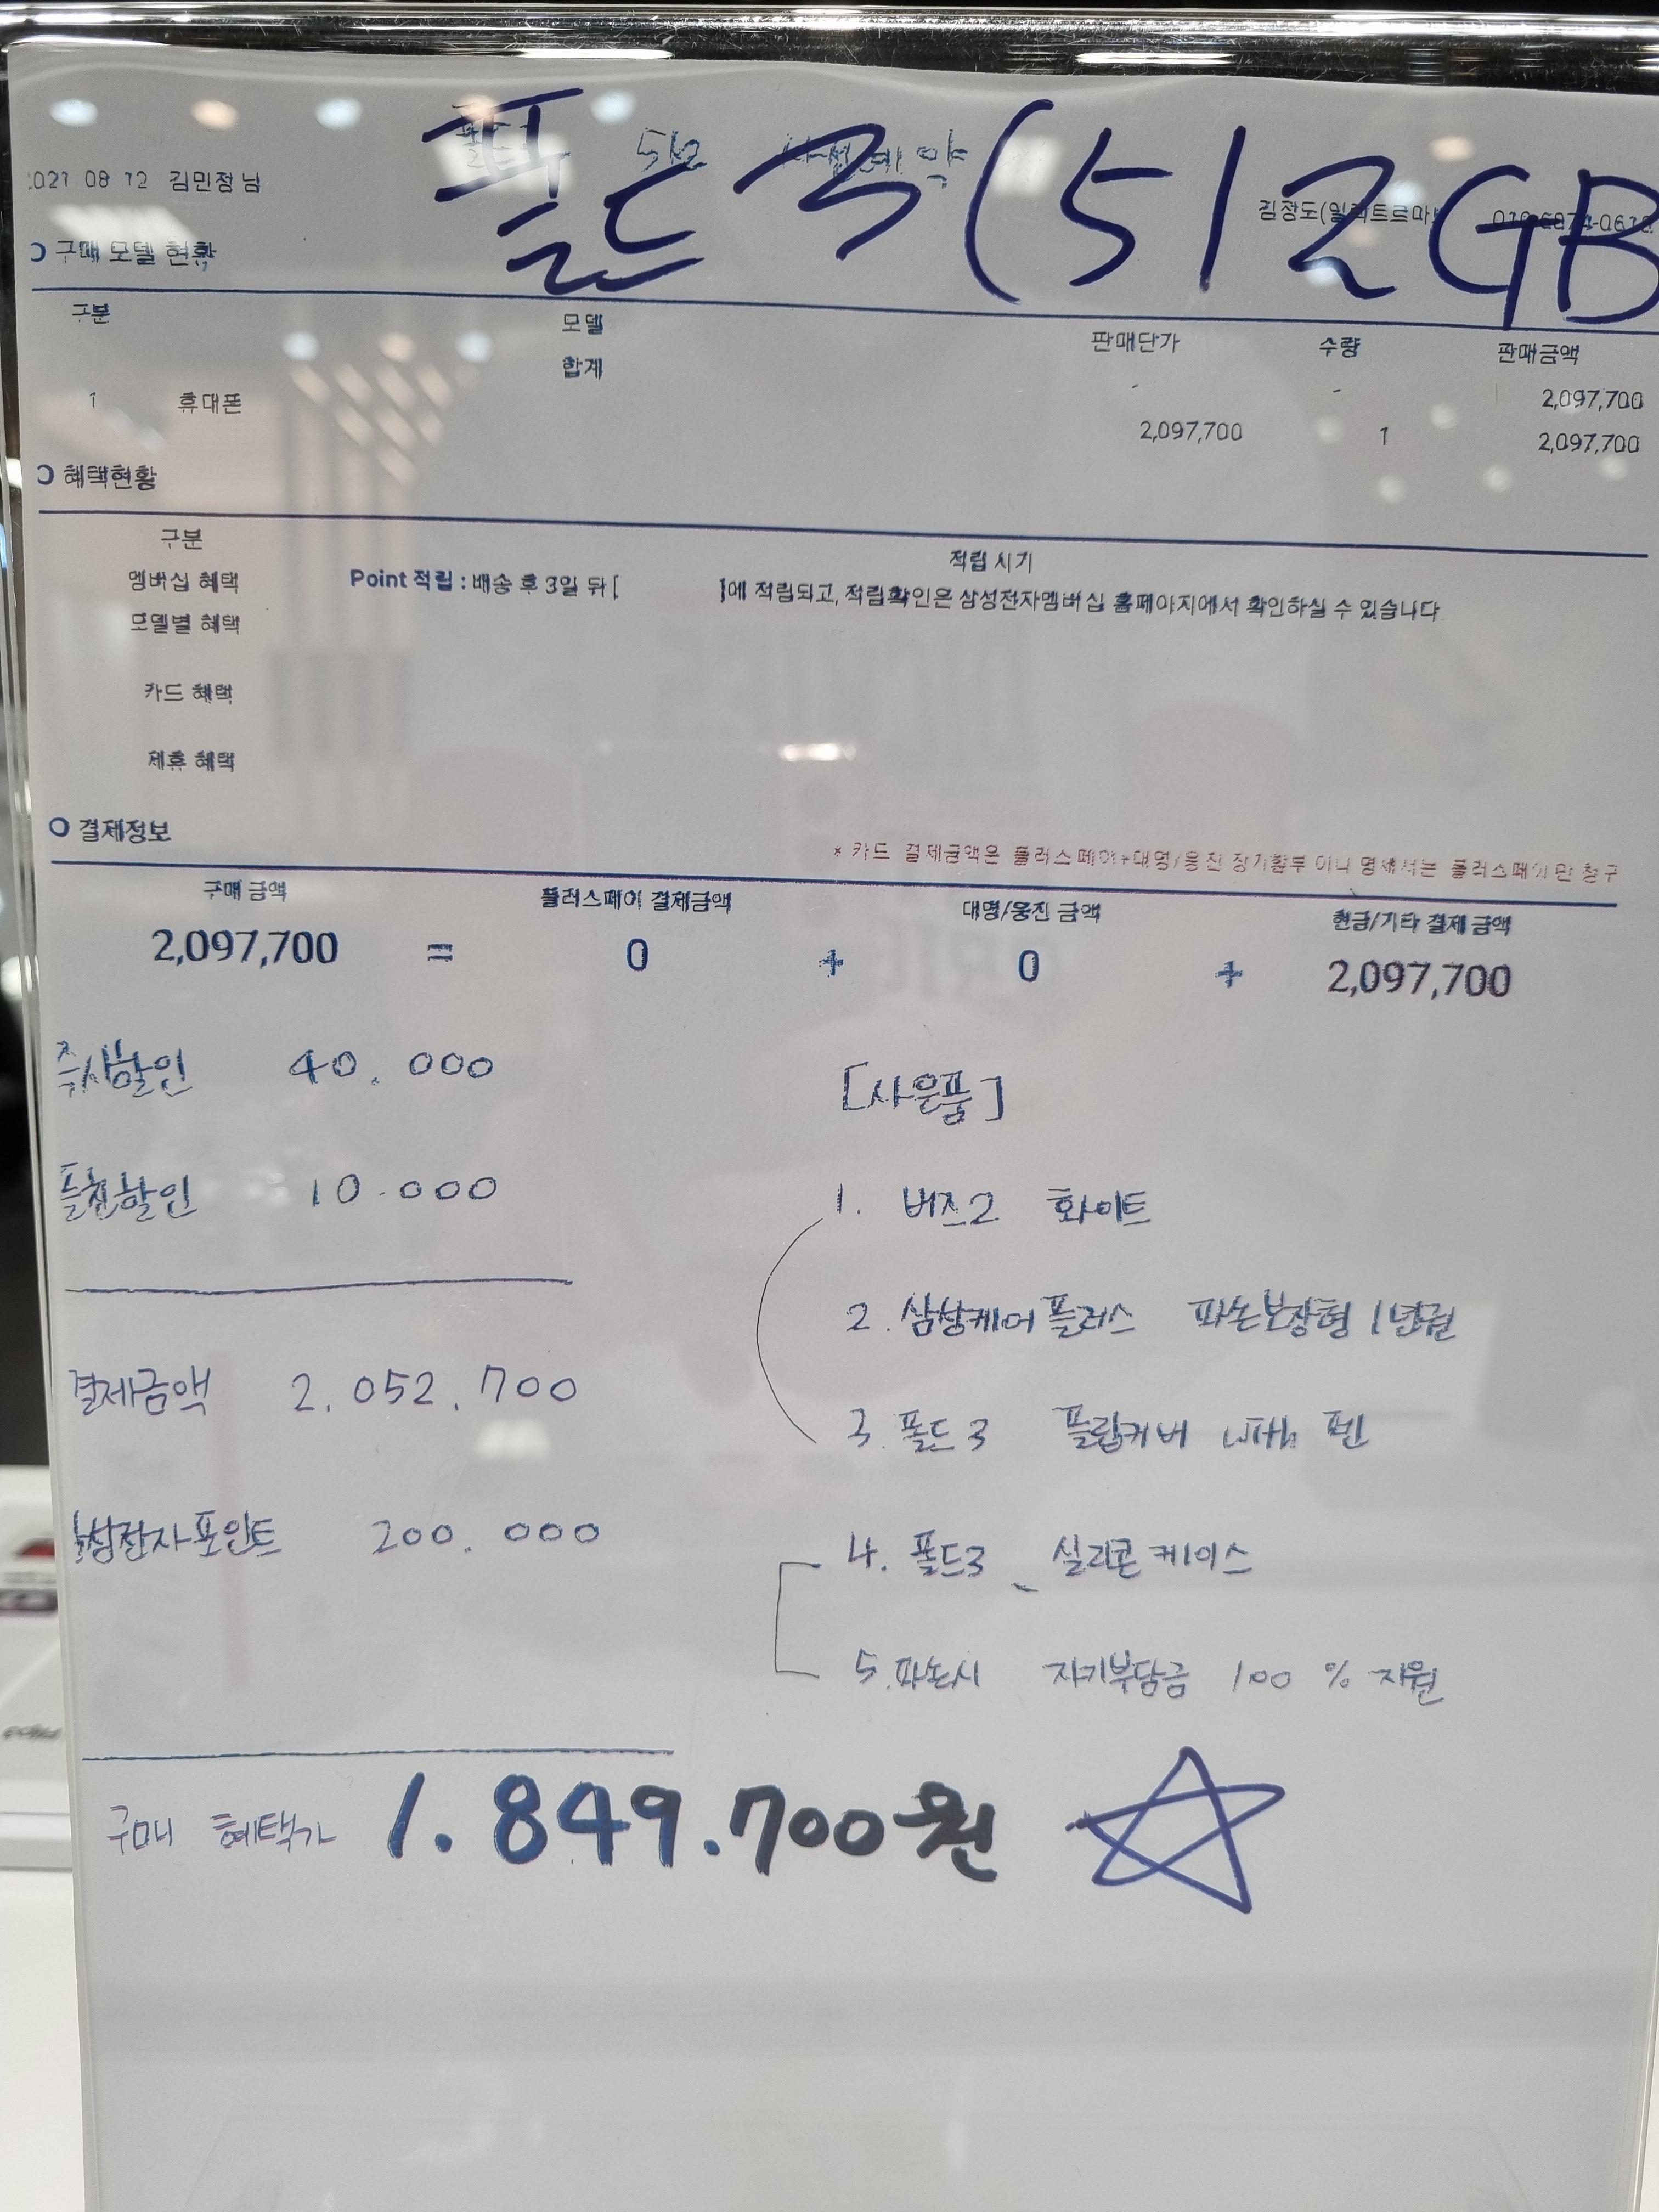 폴드3 (512GB
512 사전예약
2021 08 12 김민정 님
구매 모델 현황
구분 모델 판매단가 수량 판매금액
합계 - - 2,097,700
1 휴대폰 2,097,700 1 2,097,700
혜택현황
구분 적립 시기
멤버십 혜택 Point 적립 : 배송 후 3일 뒤 [ ]에 적립되고, 적립확인은 삼성전자멤버십 홈페이지에서 확인하실 수 있습니다
모델별 혜택
카드 혜택
제휴 혜택
결제정보
* 카드 결제금액은 플러스페이+대명/웅진 장기할부 이니 명세서는 플러스페이만 청구
구매 금액 플러스페이 결제금액 대명/웅진 금액 현금/기타 결제 금액
2,097,700 = 0 + 0 + 2,097,700
즉시할인 40.000
플친할인 10.000
결제금액 2.052.700
삼성전자포인트 200.000
구매 혜택가 1.849.700원
[사은품]
1. 버즈2 화이트
2. 삼성케어플러스 파손보장형 1년권
3. 폴드3 플립커버 with 펜
4. 폴드3 실리콘케이스
5. 파손시 자기부담금 100 % 지원